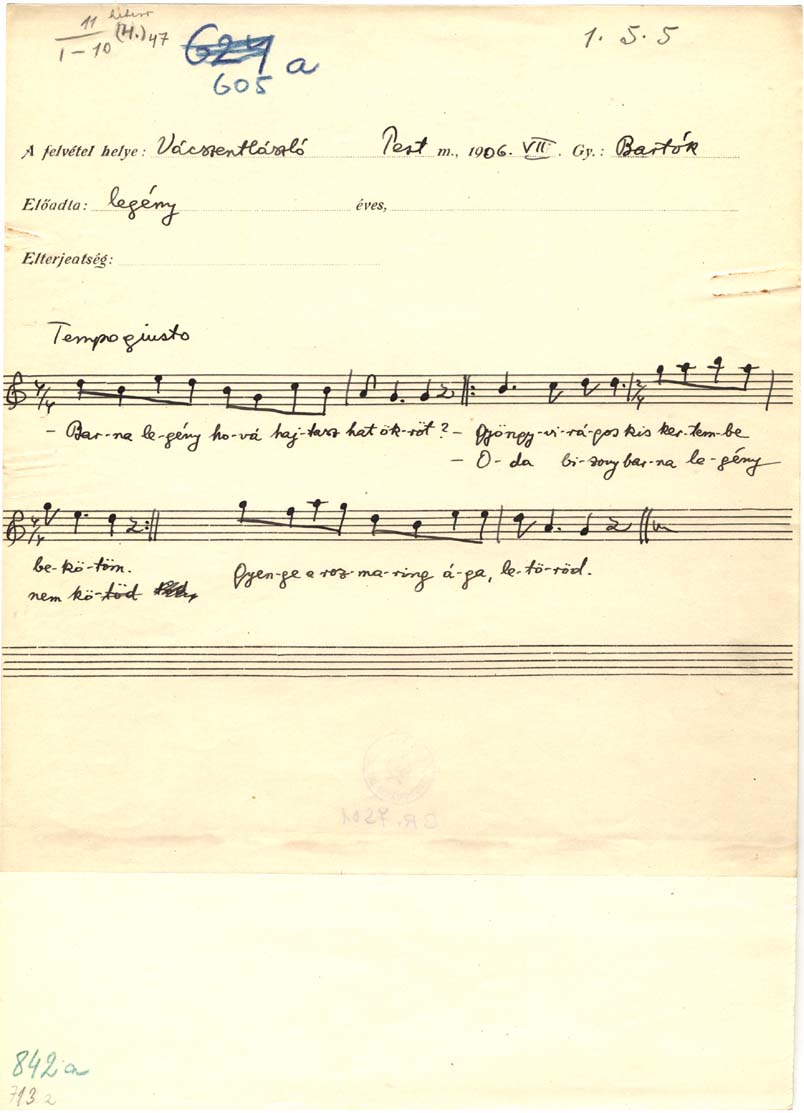 11
I–10 (H.) 47
624 a
605
1. 5. 5
A felvétel helye: Vácszentlászló Pest m., 1906. VII. Gy.: Bartók
Előadta: legény éves,
Elterjedtség:
Tempo giusto
– Bar-na le-gény ho-vá haj-tasz hat ök-röt? – Gyöngy-vi-rá-gos kis ker-tem-be
– O-da bi-zony bar-na le-gény
be-kö-töm. Gyen-ge a roz-ma-ring á-ga, le-tö-röd.
nem kö-töd
842 a
713 a